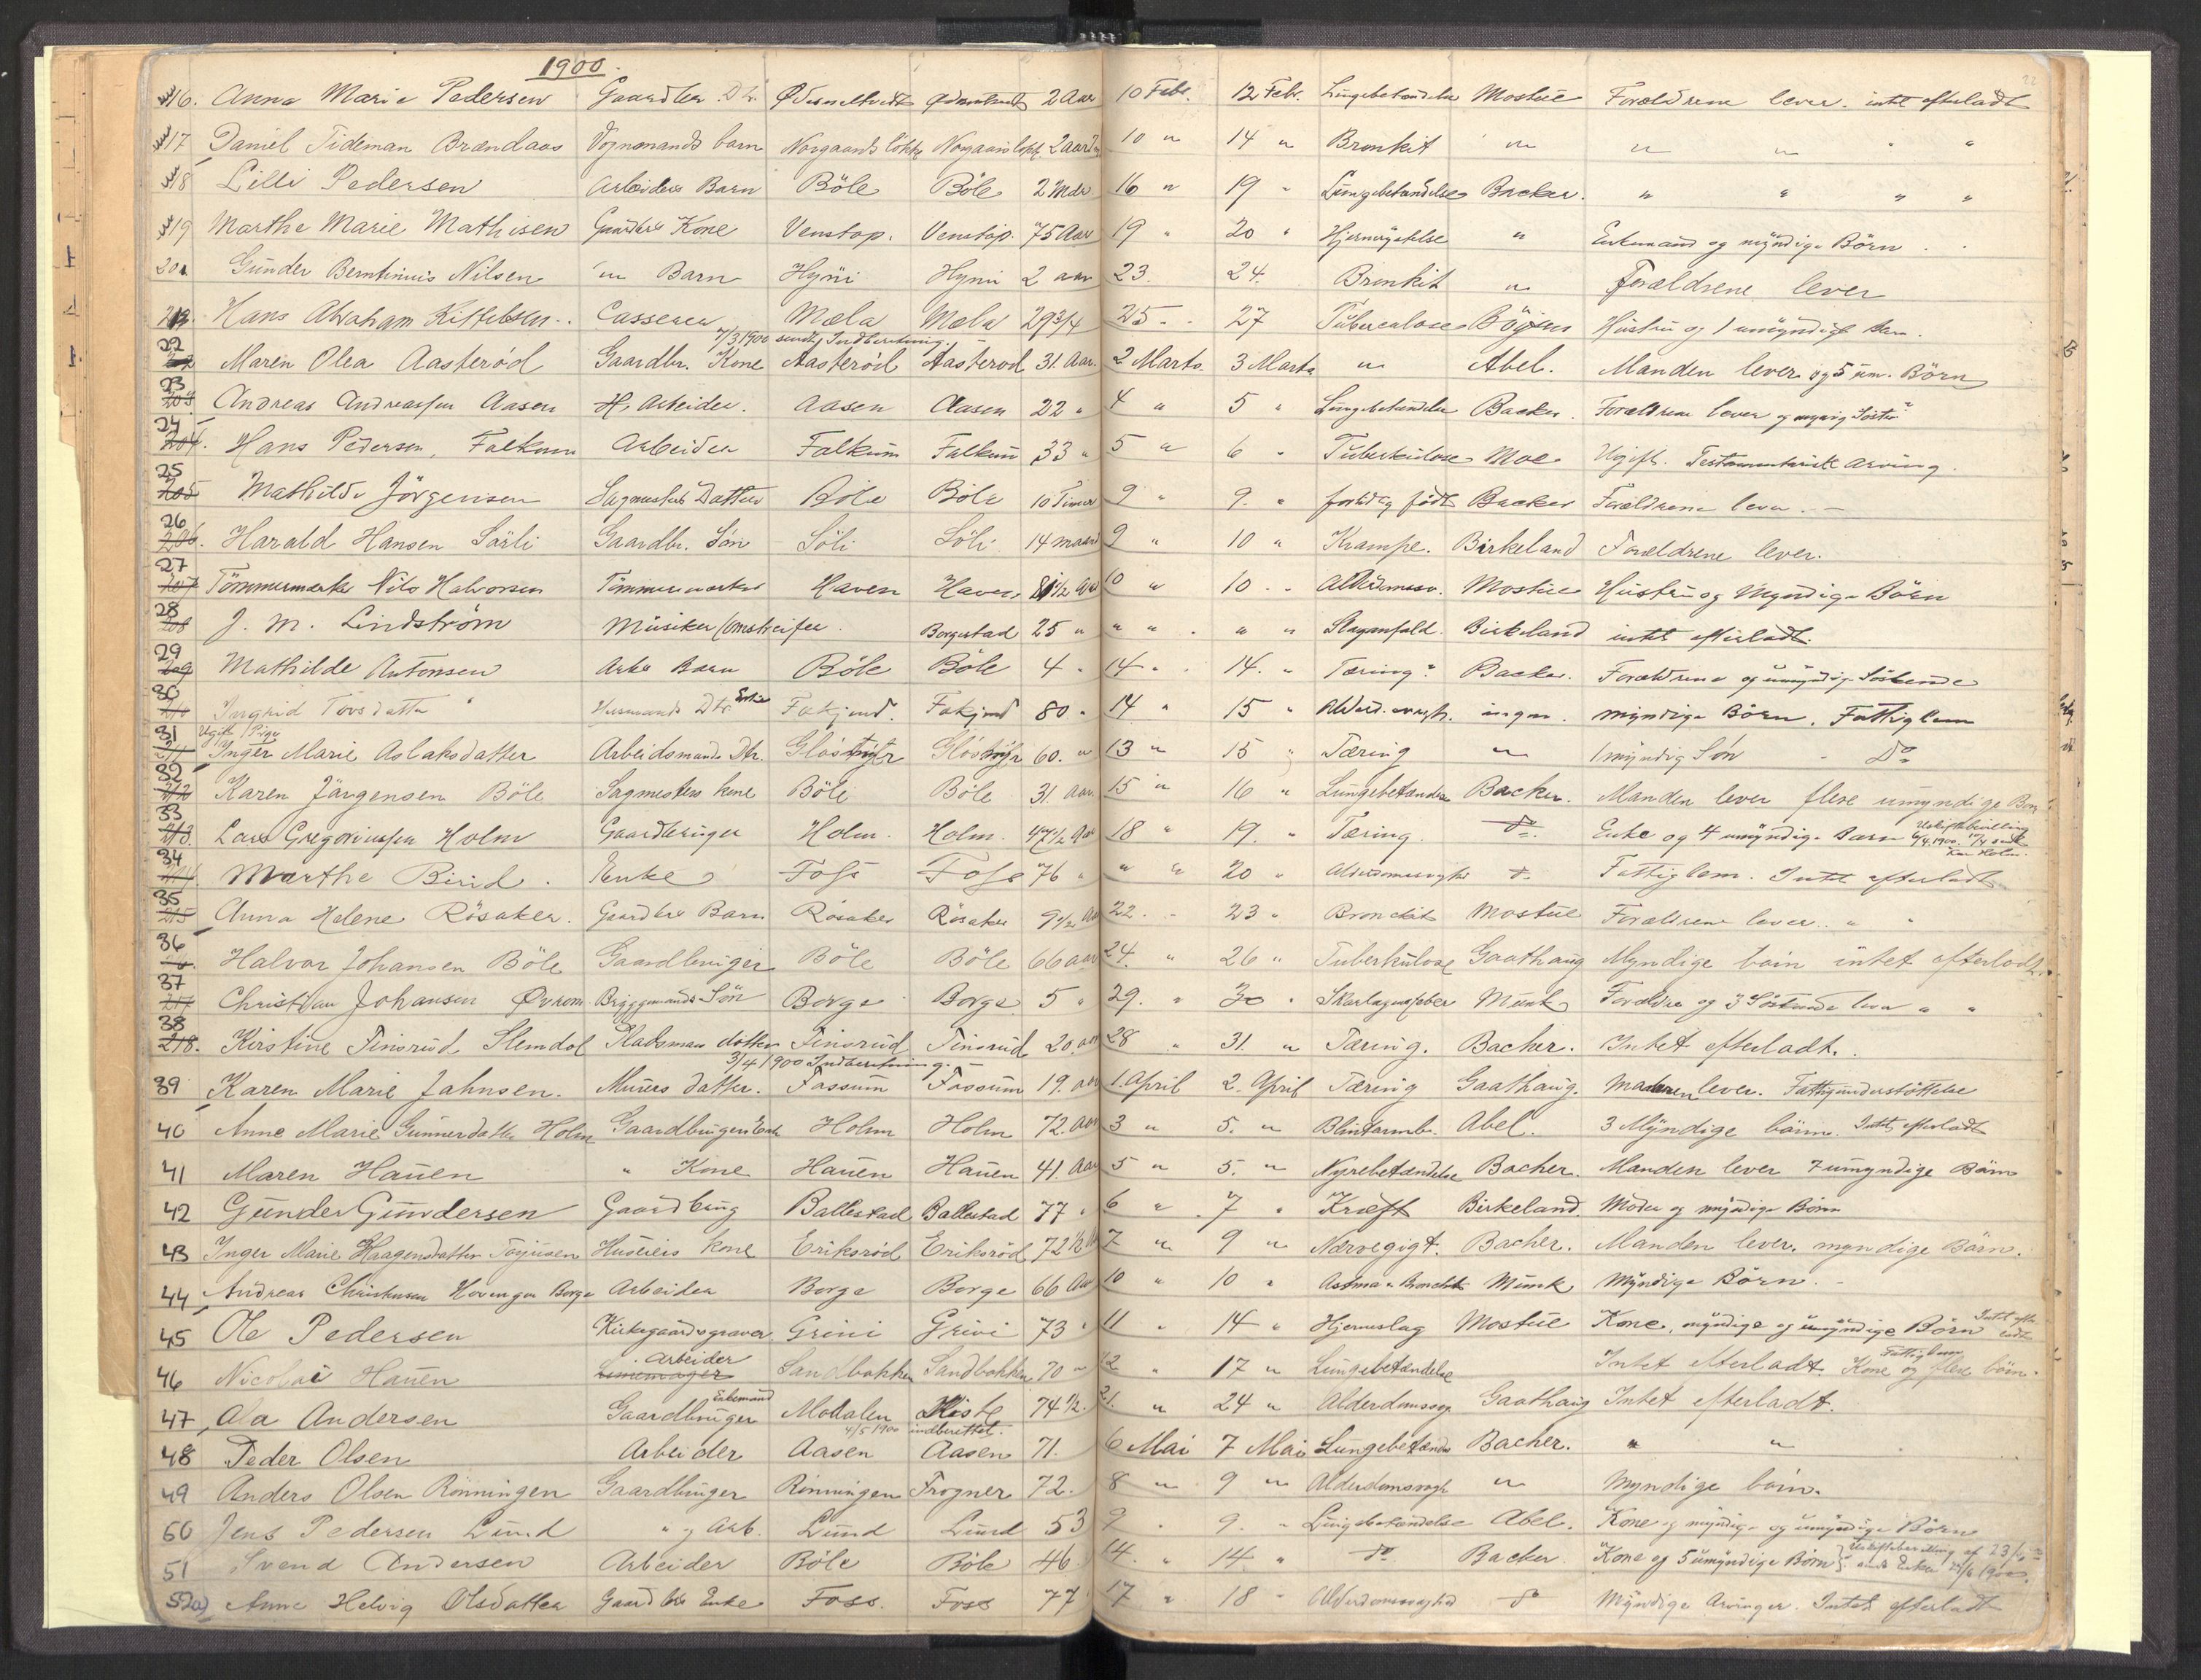 1900.
22
16. Anna Marie Pedersen Gaardbr. Dtr. 2 Aar 10 Febr. 12 Febr. Lungebetændelse Mostue Forældrene lever. intet efterladt
17 Daniel Tideman Brændaas Vognmands barn Norgaards løkke Norgaards løkk 2 Aar 10 " 14 " Bronkit " " " " "
18 Lilli Pedersen Arbeiders Barn Böle Böle 2 Mdr 16 " 19 " Lungebetændelse Backer. " " " "
19 Marthe Marie Mathisen Gaardbrs Kone Venstøp. Venstøp. 75 Aar 19 " 20 " " Enkemand og myndige Börn
20 Gunder Berntinius Nilsen " Barn Hyni Hyni 2 aar 23. 24. Bronkit " Forældrene lever
21 Hans Abraham Kittelsen. Casserer Mæla Mæla 29 3/4 25 27 Tuberculose Hustru og 1 umyndigt barn.
/3 1900 sendt Indberetning. –
22 Maren Olea Aasteröd Gaardbr. Kone Aasteröd Aasteröd 31. Aar. 2 Marts. 3 Marts " Abel. Manden lever og 5 um. Börn
23 Andreas Andreassen Aasen H. Arbeider. Aasen Aasen 22 " 4 " 5 " Lungebetændelse Backer. Forældrene lever og
24 204. Hans Pedersen, Falkum Arbeider Falkum Falkum 33 " 5 " 6 " Tuberkulose Moe Ugift. Testamentarisk arving.
25 205 Mathilde Jörgensen Sagmesters Datter Böle Böle 10 Timer 9 " 9. " for tidlig født Backer Forældrene lever. –
26 206. Harald Hansen Sörli Gaardbr. Sön Söli Söli 14 maand 9 " 10 " Krampe. Birkeland Forældrene lever.
27 207 Tömmermærker Nils Halvorsen Tömmermærker Haven Haven 81 1/2 Aar 10 " 10 " Alderdomssv. Mostue Hustru og Myndige Börn
28 208 J. M. Lindström Musiker (omstreifer Borgestad 25 " " " " " Slaganfald. Birkeland intet efterladt.
29 209 Mathilde Antonsen Arbs Barn Böle Böle 4 " 14 " 14. " Tæring. Backer. Forældrene og umyndige Söskende
30 210 Ingrid Tovsdatter Husmands Dtr Enke 80 " 14 " 15 " ingen. myndige Börn. Fattiglem
Ugift Pige
31 211 Inger Marie Aslaksdatter Arbeidsmands Dtr. 60. " 13 " 15 " Tæring " 1 myndig Sön – Do
32 212 Karen Jörgensen Böle Sagmesters kone Böle Böle 31 Aar. 15 " 16 " Lungebetændelse Backer. Manden lever flere umyndige Børn
33 213. Lars Gregoriussen Holm Gaardbruger Holm. Holm. 47 1/2 Aar 18 " 19. " Tæring. do. Enke og 4 umyndige Barn Uskiftebevilling 6/4 1900.
34 214. Marthe Birid. Enke Foss Foss 76 " " " 20 " Alderdomssvaghed do Fattiglem. Intet efterladt
35 215 Anna Helene Rösaker. Gaardbrs Barn Rösaker Rösaker 9 1/2 22. 23 " Bronchit Mostue Forældrene lever. " "
36 Halvor Johansen Böle Gaardbruger Böle Böle 66 aar 24. " 26 " Tuberkulose Gaathaug Myndige börn intet efterladt.
37 217 Christian Johansen Övrom. Bryggemands Sön Borge Borge 5 " 29. " 30 " Skarlagensfeber Munk Forældre og 3 Söskende lever " "
38 218. Kirstine Finsrud Slemdal Pladsmans datter Finsrud Finsrud 20. aar 28 " 31. " Tæring. Bacher. Intet efterladt.
3/4 1900 Indberetning. –
39 Karen Marie Jahnsen. Murers datter. Fossum Fossum 19. aar 1. April 2. April Tæring Gaathaug. Moderen lever. Fattigunderstöttelse
40 Anne Marie Gunnersdatter Holm Gaardbrugers Enke Holm Holm 72. Aar 3 " 5. " Blintarmb. Abel. 3 Myndige börn. Intet efterladt
41 Maren Hauen " Kone Hauen Hauen 41. Aar 5 " 5. " Nyrebetændelse Bacher. Manden lever 7 umyndige Börn
42 Gunder Gundersen Gaardbrug Ballestad Ballestad 77 " 6 " 7 " Kræft Birkeland. Moder og myndige Börn
43 Inger Marie Haagensdatter HusEiers kone Eriksröd Eriksröd 72 1/2 Aar 7 " 9 " Nærvegigt. Bacher. Manden lever. myndige Börn.
44 Andreas Christensen Hovengen Borge Arbeider Borge Borge 66 Aar 10 " 10 " Astma & Bronchit Munk Myndige Börn. –
45 Ole Pedersen Kirkegaardsgraver Grini Grini 73 " 11 " 14 " Hjerneslag Mostue Kone, myndige og umyndige Börn Intet efterladt
46 Nicolai Hauen Arbeider Sandbakken Sandbakken 70 " 12 " 17 " Lungebetændelse Intet efterladt. Fattiglem Kone og flere börn.
47 Ola Andersen Gaardbruger Enkemand Modalen Kiste 74 1/2. 21. " 24 " Alderdomssvag Gaathaug Intet efterladt.
4/5 1900 indberettet.
48 Peder Olsen Arbeider Aasen Aasen 71. 6 Mai 7 Mai Lungebetænds Bacher. " "
49 Anders Olsen Rönningen Gaardbruger Rönningen Frogner 72. 8 " 9 " Alderdomssvagh " Myndige börn.
50 Jens Pedersen Lund " og Arb. Lund Lund 53 9 " 9. " Lungebetændelse Abel. Kone og myndige og umyndige Börn
51 Svend Andersen Arbeider Böle Böle 46 14. " 14 " do Backer Kone og 5 umyndige Börn Uskiftebevilling af 23/6 sendt Enken 1900.
52a) Anne Helvig Olsdatter Gaardbrs Enke Foss. Foss 77 17 " 18 " Alderdomssvaghed do Myndige Arvinger. Intet efterladt